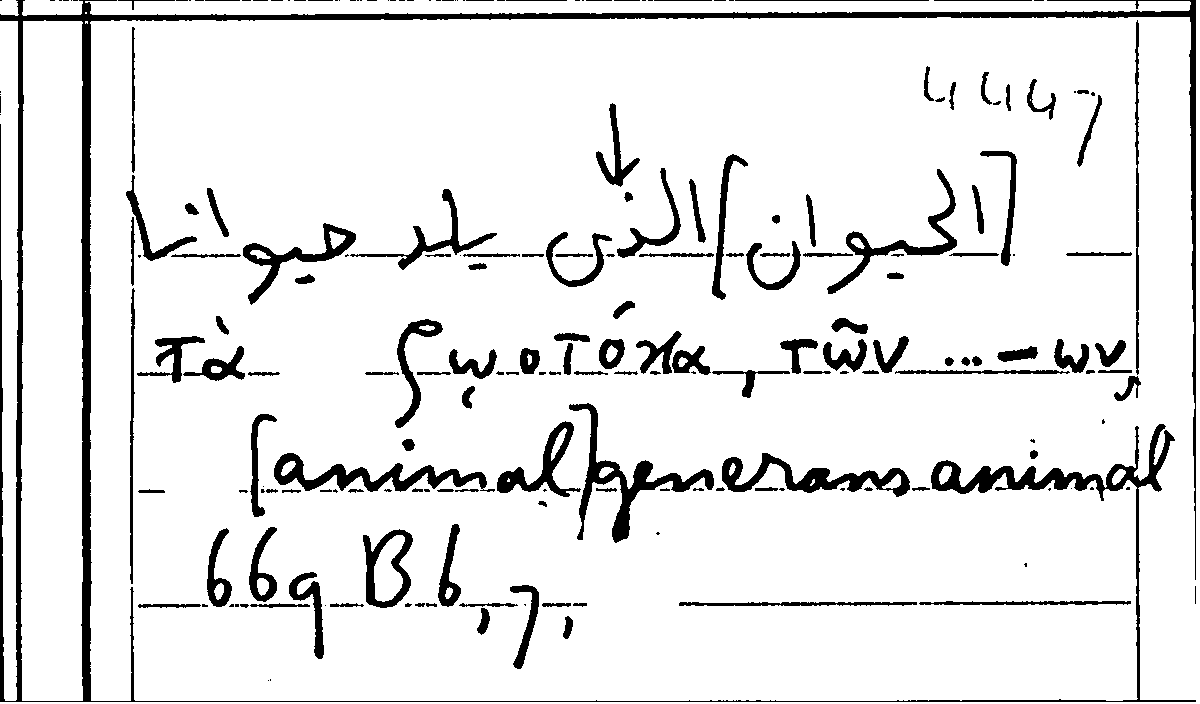 4447
↓
[الحيوان] الذى يلد حيوانا
τὰ ζῳοτόκα, τῶν ... -ων,
[animal] generans animal
669 B 6, 7,